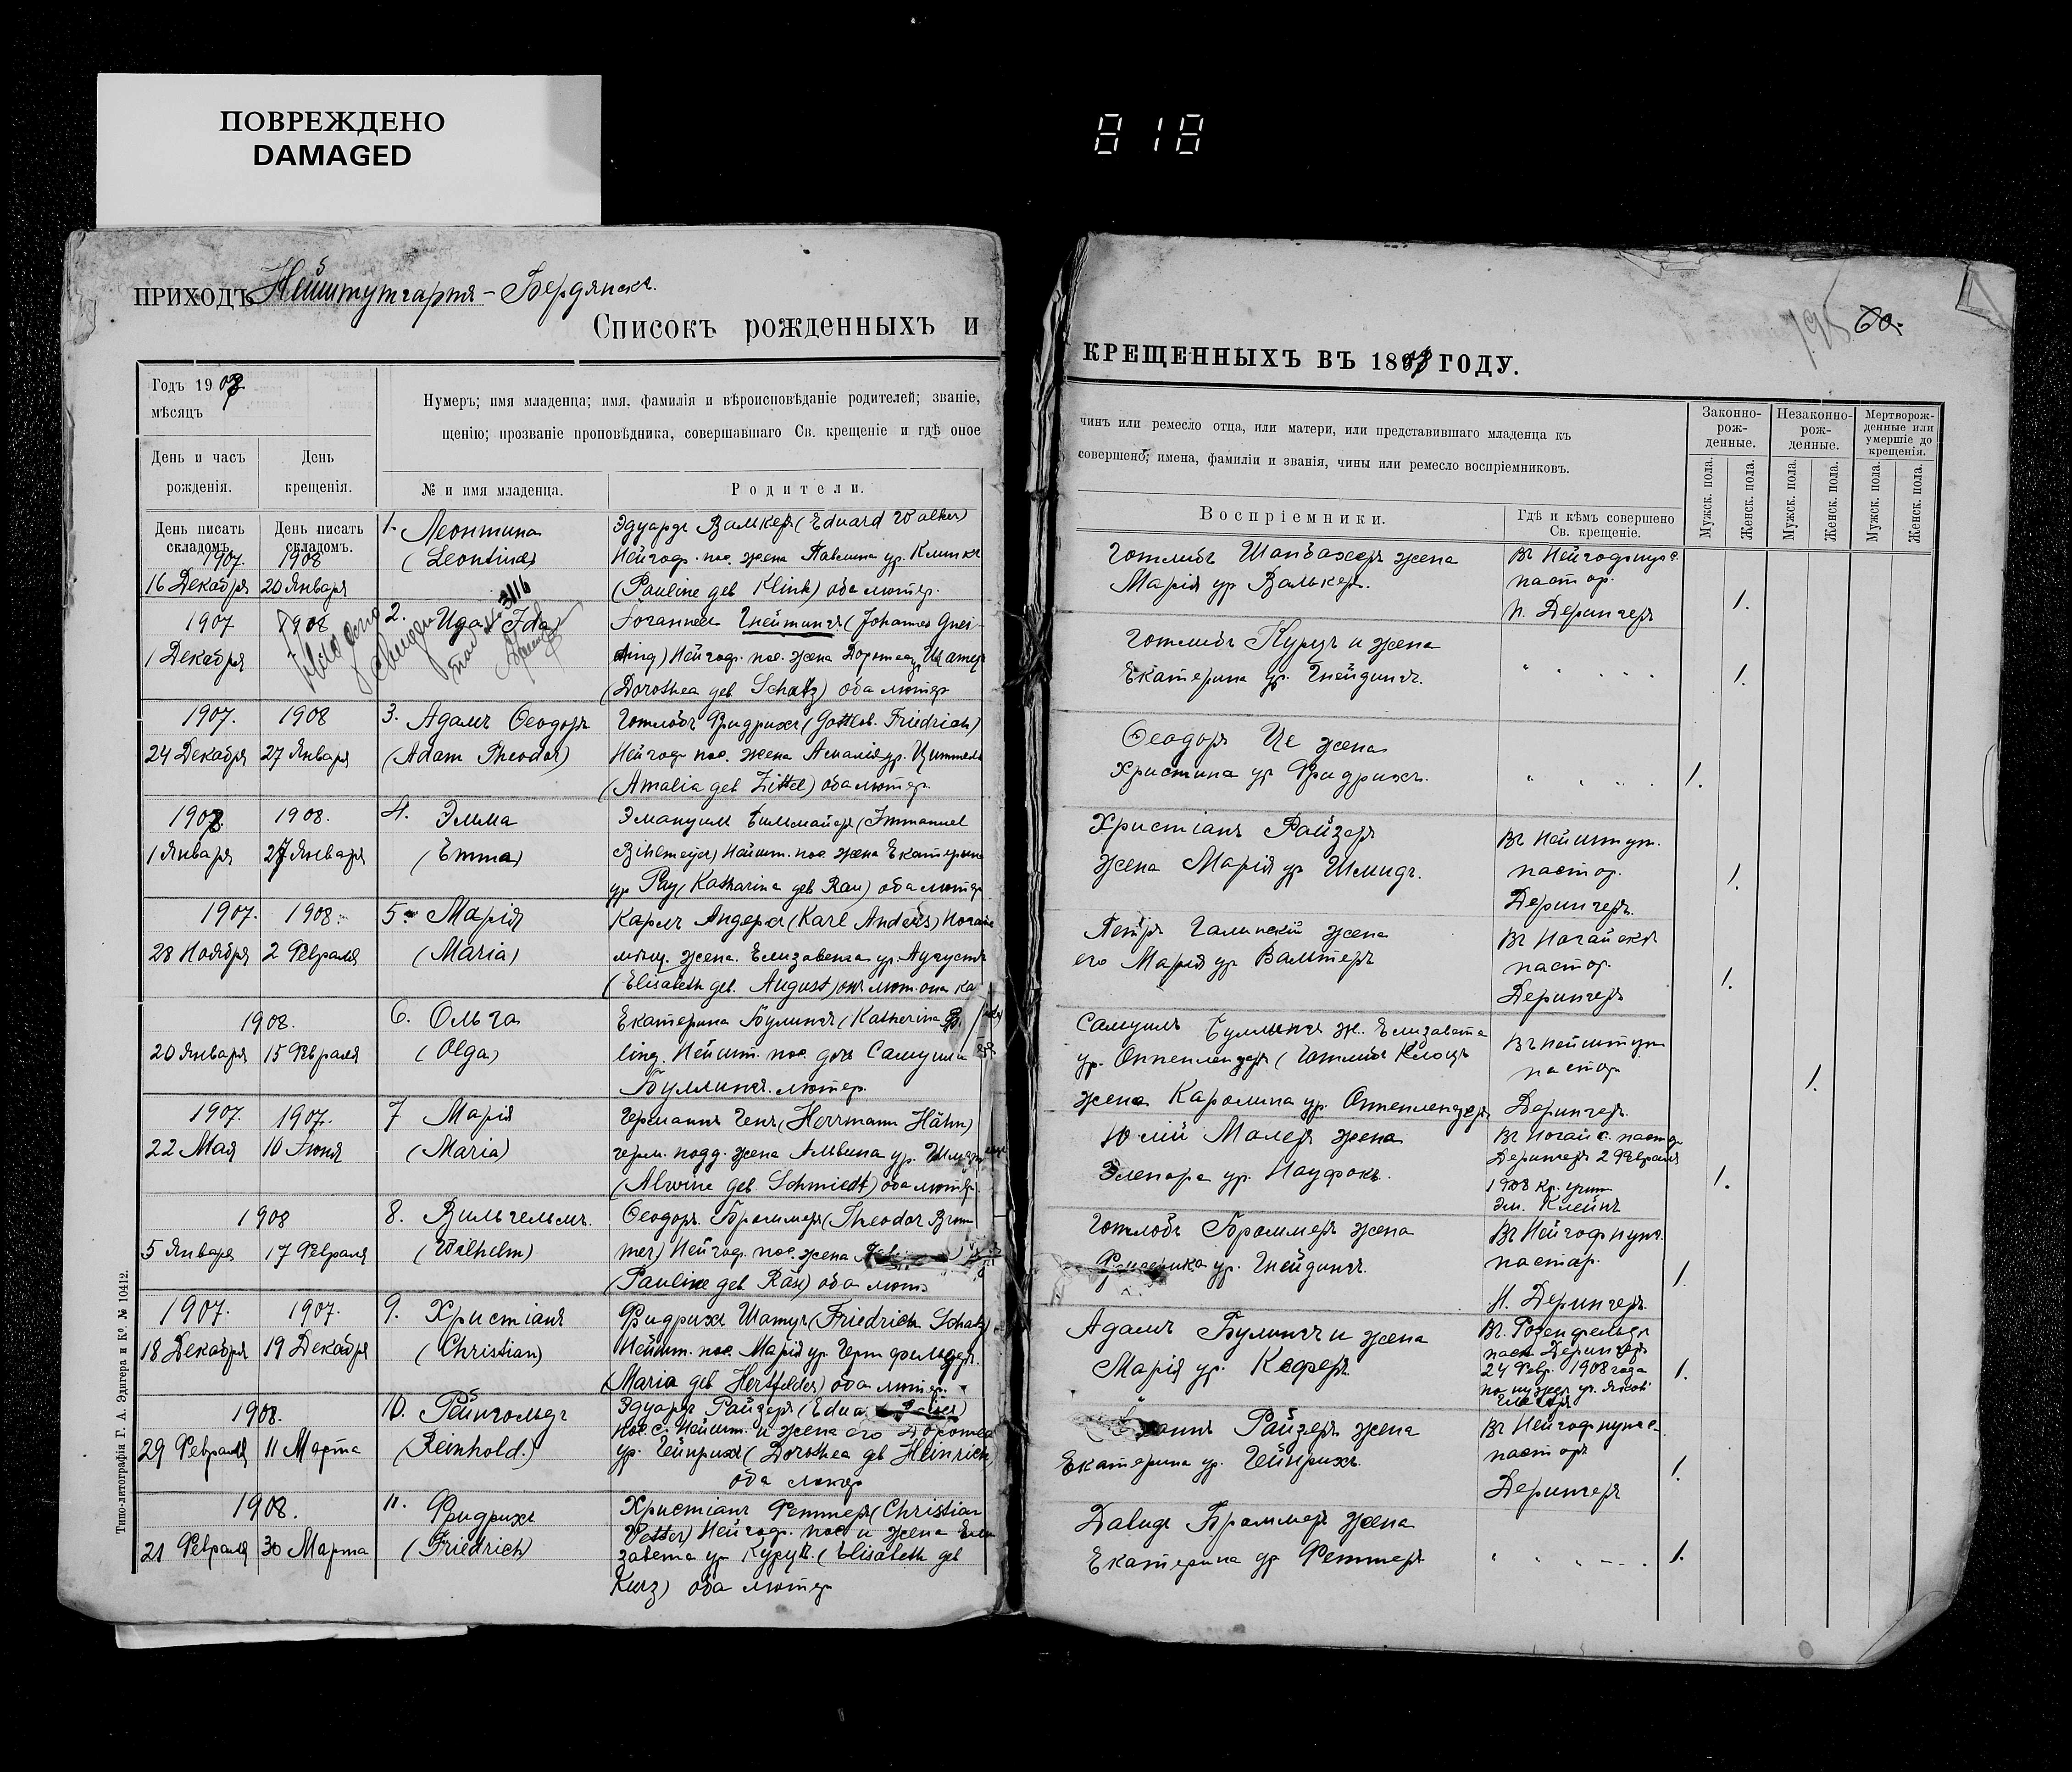 ПОВРЕЖДЕНО
DAMAGED
818
ПРИХОДЪ Нейштутгартъ-Бердянскъ.
Списокъ рожденныхъ и
Годъ 1908
мѣсяцъ
Нумеръ; имя младенца; имя, фамилія и вѣроисповѣданіе родителей; званіе,
щенію; прозваніе проповѣдника, совершавшаго Св. крещеніе и гдѣ оное
День и часъ
рожденія.
День
крещенія.
№ и имя младенца.
Родители.
День писать
складомъ.
День писать
складомъ.
1907.
16 Декабря
1908
20 Января
1. Леонтина
(Leontina)
Эдуардъ Валкеръ (Eduard Walker)
Нейгоф. пос. жена Павлина ур. Клинкъ
(Pauline geb Klink) оба лютер.
1907
1 Декабря
1908
2. Ида Ida
3116
Іоганнесъ Гнейтингъ (Johannes Gnei-
ting) Нейгоф. пос. жена Доротея ур. Шатцъ
(Dorothea geb Schatz) оба лютер
1907.
24 Декабря
1908
27 Января
3. Адамъ Ѳеодоръ
(Adam Theodor)
Готлобъ Фридрихъ (Gottlob. Friedrich)
Нейгоф пос. жена Амалія ур. Циттель
(Amalia geb Zittel) оба лютер.
1908
1 Января
1908.
27 Января
4. Эмма
(Emma)
Эмануилъ Бильмайеръ (Immanuel
Bihlmeyer) Нейшт. пос. жена Екатерина
ур Рау (Katharina geb Rau) оба лютер
1907.
28 Ноября
1908.
2 Февраля
5. Марія
(Maria)
Карлъ Андерсъ (Karl Anders) Ногайс
мѣщ. жена. Елизавета ур. Августъ
(Elisabeth geb. August) онъ лют. она ка
1908.
20 Января 15 Февраля
6. Ольга
(Olga)
Екатерина Булингъ (Katherina B
ling. Нейшт. пос. дочь Самуила
Буллингъ. лютер.
1907.
22 Мая
1907.
10 Іюня
7 Марія
(Maria)
Германнъ Генъ (Herrmann Hähn)
герм. подд. жена Альвина ур. Шмидтъ
(Alwine geb Schmiedt) оба лютер.
1908
5 Января 17 Февраля
8. Вильгельмъ.
(Wilhelm)
Ѳеодоръ Броммеръ (Theodor Brom
mer) Нейгоф. пос. жена
(Pauline geb Räu) оба лют
1907.
18 Декабря
1907.
19 Декабря
9. Христіанъ
(Christian)
Фридрихъ Шатцъ (Friedrich Schatz)
Нейшт. пос. Марія ур Гертфельдеръ.
(Maria geb Hertfelder) оба лютер.
1908.
29 Февраля 11 Марта
10. Рейнгольдъ
(Reinhold.)
Эдуардъ Райзеръ (Edua
пос. с. Нейшт. и жена его Доротея
ур. Гейнрихъ (Dorothea geb Heinrich)
оба лютер
1908.
21 Февраля 30 Марта
11. Фридрихъ
(Friedrich)
Христіанъ Феттеръ (Christian
Vetter) Нейгоф. пос и жена Ели
завета ур Курцъ (Elisabeth geb
Kurz) оба лютер
Типо-литографія Г. А. Эдигера и К⁰. № 10412.
795 60.
КРЕЩЕННЫХЪ ВЪ 1808 ГОДУ.
чинъ или ремесло отца, или матери, или представившаго младенца къ
совершено; имена, фамиліи и званія, чины или ремесло воспріемниковъ.
Законно-
рож-
денные.
Незаконно-
рож-
денные.
Мертворож-
денные или
умершіе до
крещенія.
Воспріемники.
Гдѣ и кѣмъ совершено
Св. крещеніе.
Мужск. пола.
Женск. пола.
Мужск. пола.
Женск. пола.
Мужск. пола.
Женск. пола.
Готлибъ Шанбахеръ жена
Марія ур Валькеръ.
Въ Нейгофнунг
пастор.
п. Дерингеръ
1.
Готлибъ Курцъ и жена
Екатерина ур. Гнейдингъ.
" . . . .
1.
Ѳеодоръ Це жена
Христина ур Фридрихъ.
" . . .
1.
Христіанъ Райзеръ
жена Марія ур Шмидъ.
Въ Нейштут.
пастор.
Дерингеръ.
1.
Петръ Галинскій жена
его Марія ур Вальтеръ
Въ Ногайскѣ
пастор.
Дерингеръ
1.
Самуилъ Буллингъ ж. Елизавета
ур. Оппенлендеръ (Готлибъ Клоцъ
жена Каролина ур. Оппенлендеръ
Въ Нейштут
пастор
Дерингеръ.
1.
Юлій Малеръ жена
Элеонора ур. Науфокъ.
Въ Ногайс. пастор
Дерингеръ 2 Февраля
1908 кр. учит
Эм. Клейнъ
1.
Готлобъ Броммеръ жена
Фридерика ур. Гнейдингъ.
Въ Нейгофнунг.
пастор.
п. Дерингеръ.
1.
Адамъ Булингъ и жена
Марія ур. Кеферъ
Въ Розенфельдѣ
паст. Дерингеръ
24 Февр. 1908 года
по нуждѣ уч. Яковъ
1.
Райзеръ жена
Екатерина ур. Гейнрихъ.
Въ Нейгофнунгѣ
пасторъ
Дерингеръ
1.
Давидъ Броммеръ жена
Екатерина ур Феттеръ
" " " - - .
1.